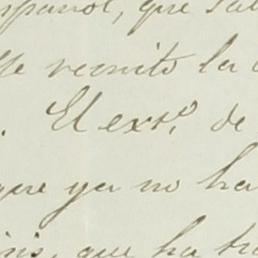 español, que
le remito la
El ext.º de
que ya no ha
que ha